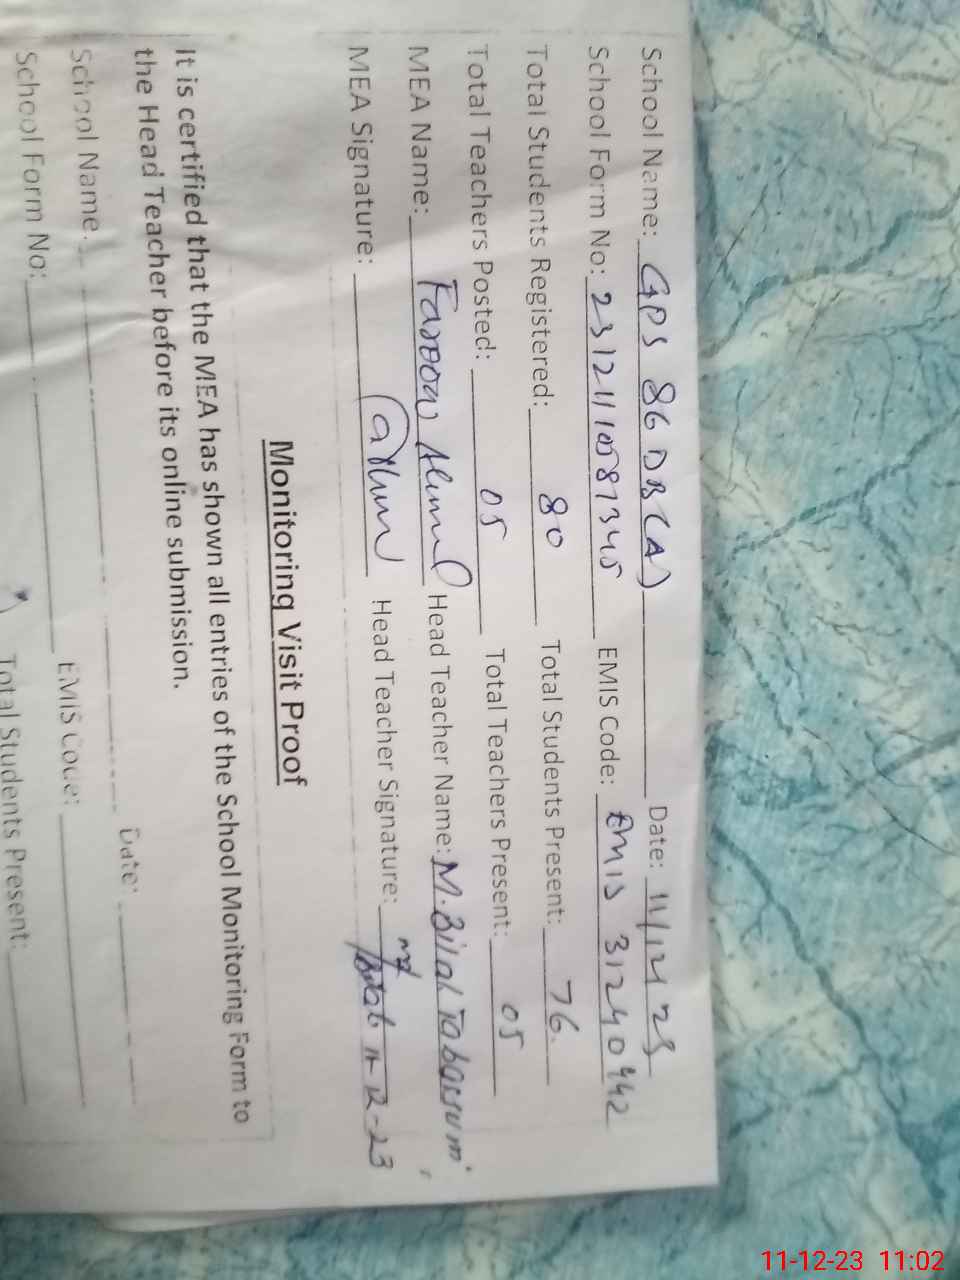 School Name: GPS 86 DB (A) Date: 11/12/23
School Form No: 2312110587345 EMIS Code: EMIS 31240442
Total Students Registered: 80 Total Students Present: 76
Total Teachers Posted: 05 Total Teachers Present: 05
MEA Name: Farooq Ahmed Head Teacher Name: M. Bilal Tabassum
MEA Signature: Head Teacher Signature: 11-12-23
Monitoring Visit Proof
It is certified that the MEA has shown all entries of the School Monitoring Form to
the Head Teacher before its online submission.
School Name: Date:
School Form No: EMIS Code:
Total Students Present:
11-12-23 11:02